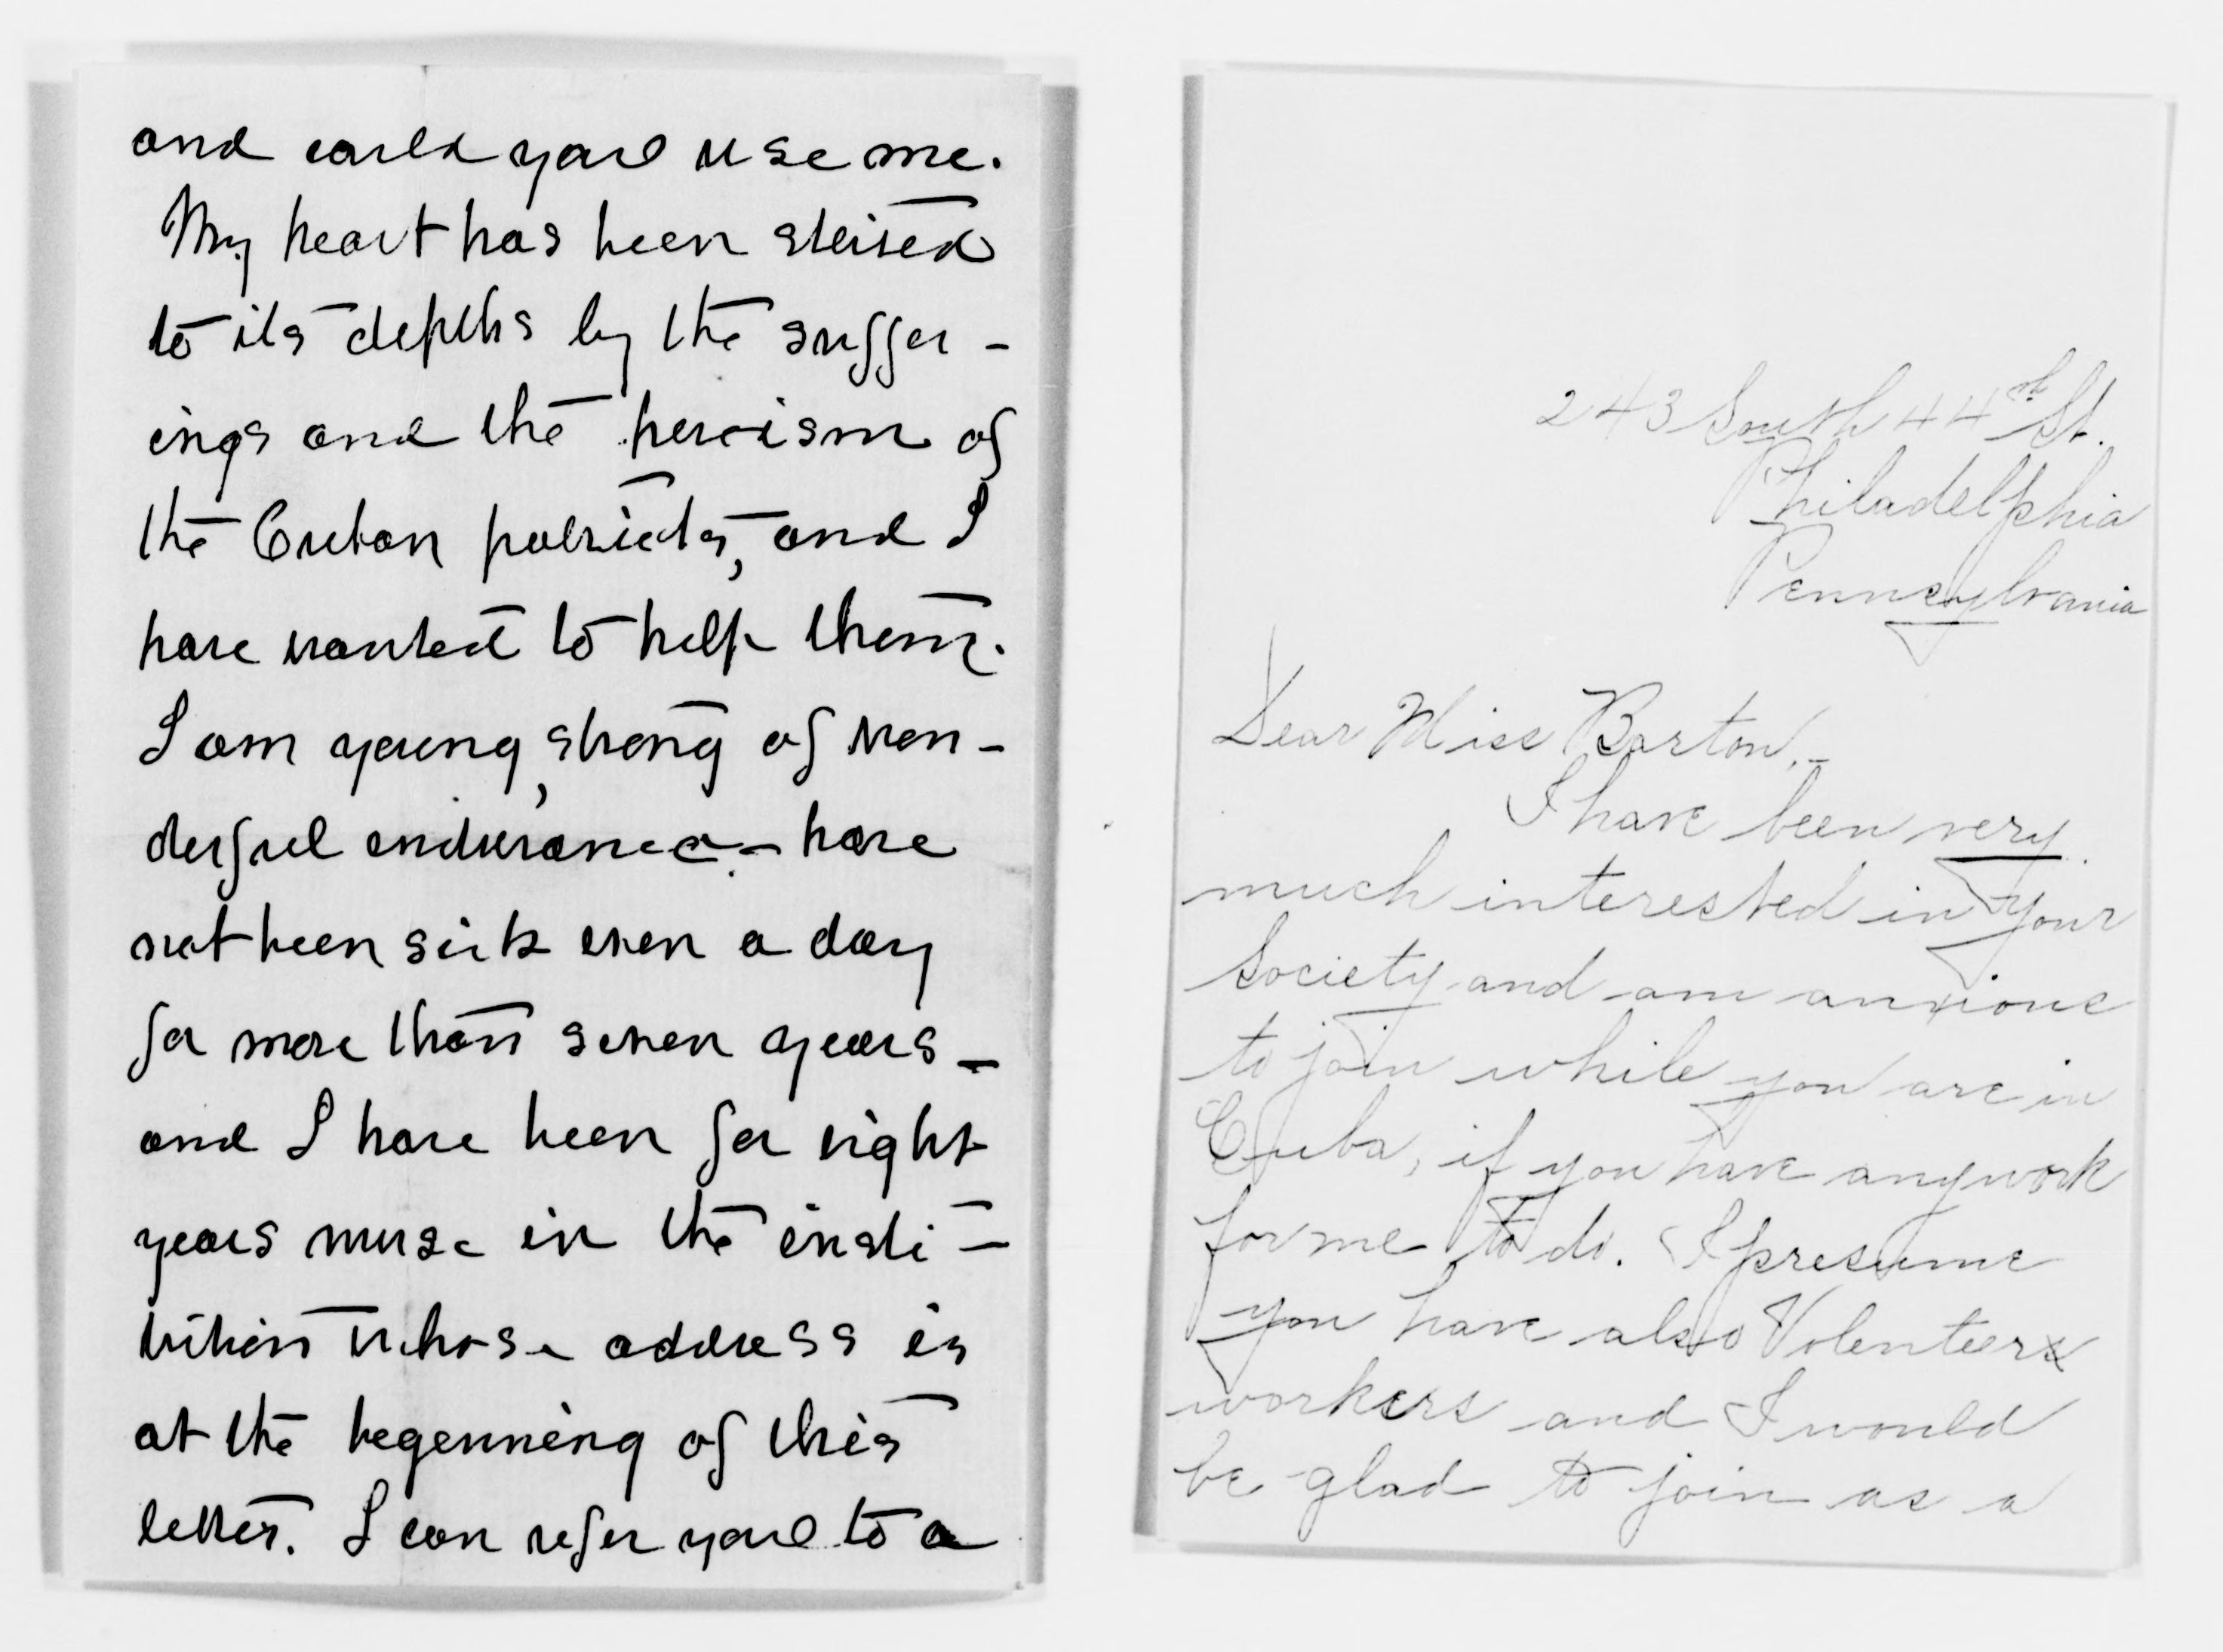 and could you use me.
My heart has been stirred
to its depths by the suffer-
ings and the heroism of
the Cuban patriots, and I
have wanted to help them.
I am young, strong of won-
derful endurance - have
not been sick even a day
for more than seven years -
and I have been for eight
years nurse in the insti-
tution whose address is
at the begenning of this
letter. I can refer you to a
243 South 44th St.
Philadelphia
Pennsylvania
Dear Miss Barton,-
I have been very
much interested in your
Society and am anxious
to join while you are in
Cuba, if you have any work
for me to do. I presume
you have also Volenteers
workers and I would
be glad to join as a